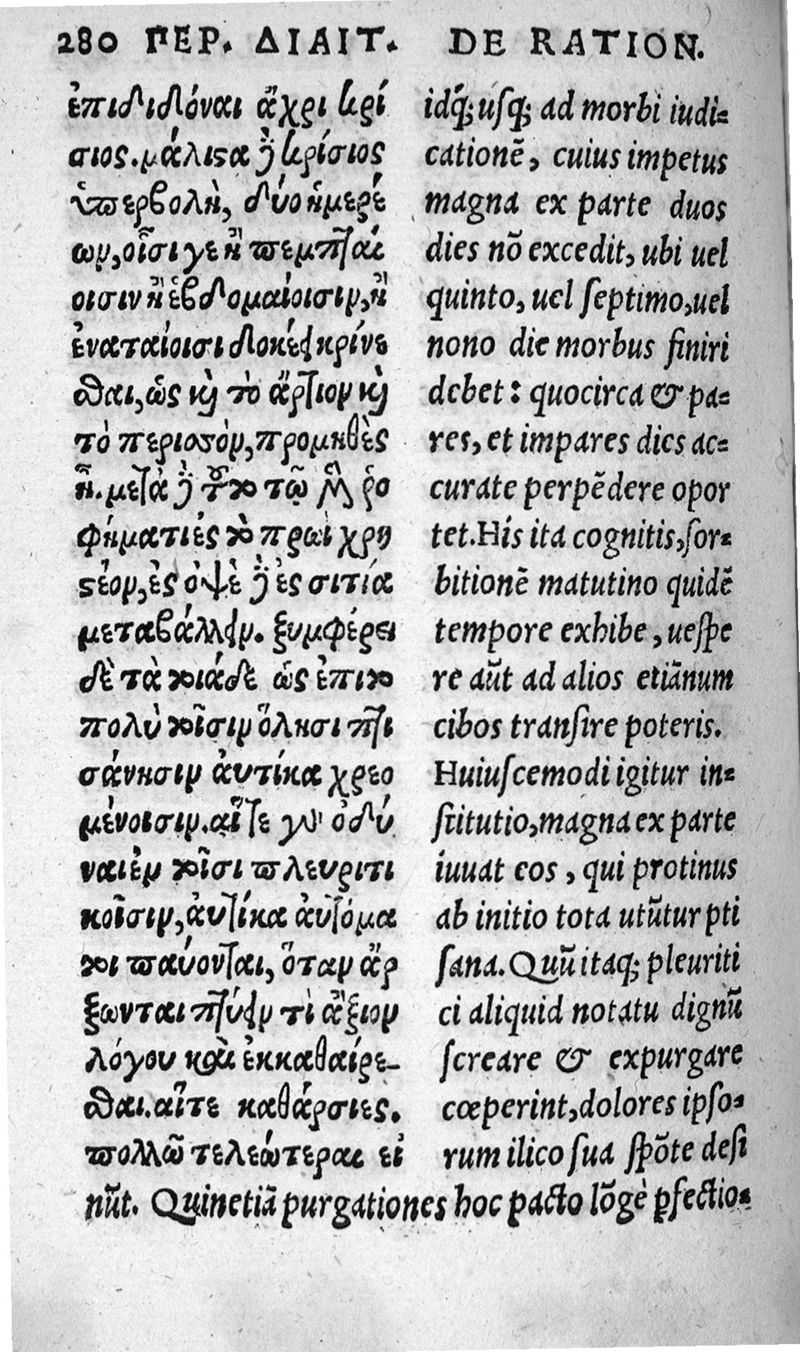 280 ΠΕΡ. ΔΙΑΙΤ. DE RATION.
ἐπιδιδόναι ἄχρι κρί
σιος. μάλιϛα ἢ κρίσιος
ὑπερβολὴ, δύο ἡμερέ
ων, οἷσί γε ἢ πεμπταί
οισιν ἢ ἑβδομαίοισιν, ἢ
ἐναταίοισι δοκέει κρίνε
σθαι, ὡς καὶ τὸ ἄρτιον καὶ
τὸ περισσὸν, προμηθὲς
ῇ. μετὰ
φήματι ἐς τὸ πρωῒ χρη
ϛέον, ἐς ὀψὲ δὲ ἐς σιτία
μεταβάλλειν. ξυμφέρει
δὲ τὰ τοιάδε ὡς ἐπιτο
πολὺ τοῖσιν ὅλῃσι πτι
σάνῃσιν ἀυτίκα χρεο
μένοισιν. αἵτε γὰρ ὀδύ
ναι ἐν τοῖσι πλευριτι
κοῖσιν, ἀυτίκα ἀυτόμα
τοι παύονται, ὅταν ἄρ
ξωνται πτύειν τὶ ἄξιον
λόγου καὶ ἐκκαθαίρε-
σθαι. αἵτε καθάρσιες.
πολλῶ τελεώτεραι εἰ
idq́; uſq; ad morbi iudi=
cationẽ, cuius impetus
magna ex parte duos
dies nõ excedit, ubi uel
quinto, uel ſeptimo, uel
nono die morbus finiri
debet: quocirca & pa=
res, et impares dies ac=
curate perpẽdere opor
tet. His ita cognitis, ſor=
bitionẽ matutino quidẽ
tempore exhibe, ueſpe
re aũt ad alios etiãnum
cibos tranſire poteris.
Huiuſcemodi igitur in=
ſtitutio, magna ex parte
iuuat eos, qui protinus
ab initio tota utũtur pti
ſana. Quũ itaq; pleuriti
ci aliquid notatu dignũ
ſcreare & expurgare
cœperint, dolores ipſo=
rum ilico ſua ſpõte deſi
nũt. Quinetiã purgationes hoc pacto lõgè p̱fectio=